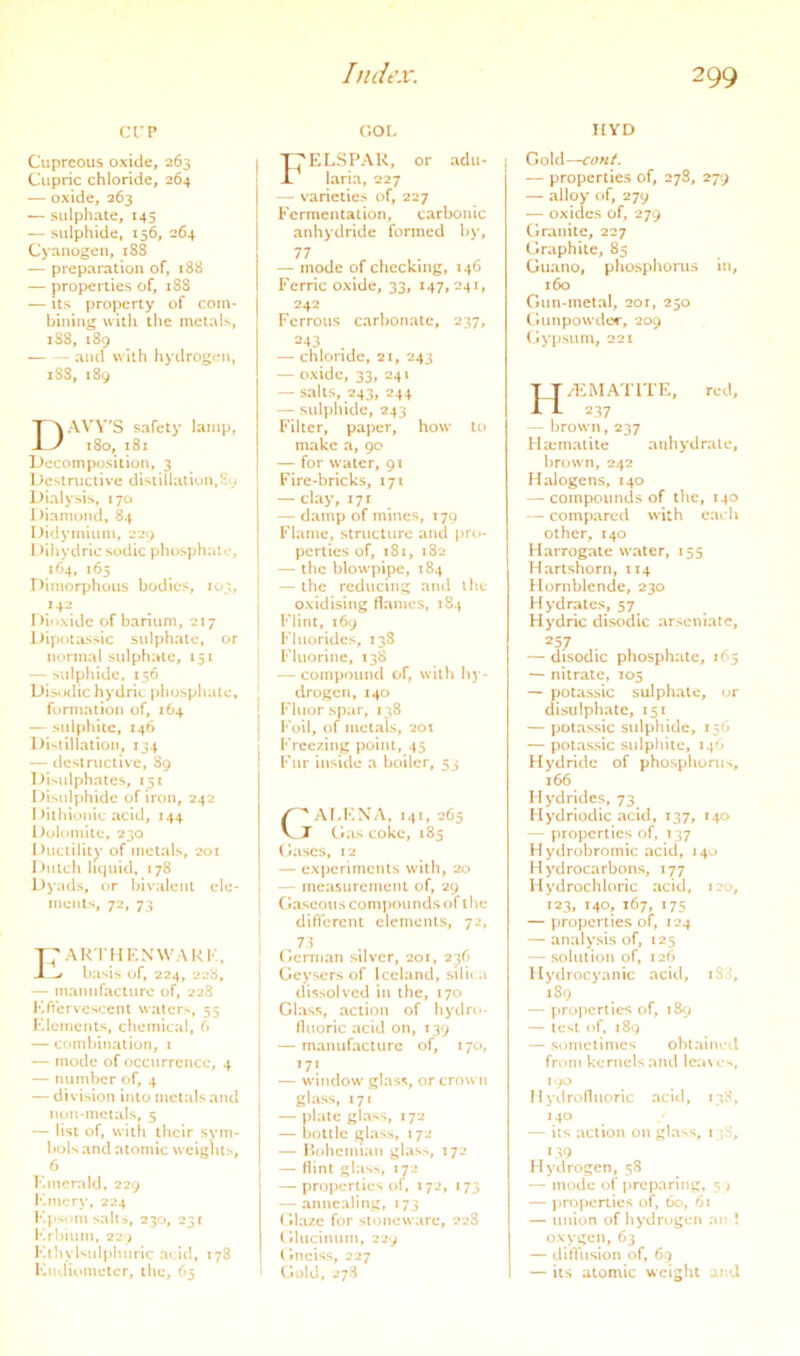 Index.
299
CUP
Cupreous oxide, 263
Cupric chloride, 264
— oxide, 263
— sulphate, 145
— sulphide, 156, 264
Cyanogen, 188
— preparation of, 188
— properties of, 188
— its property of com-
bining with the metals,
188, 189
— — and with hydrogen,
188, 189
DAVY'S safety lamp,
180, 181
Decomposition, 3
Destructive distillation, 89
Dialysis, 170
Diamond, 84
Didymium, 229
Dihydric sodic phosphate,
164, 165
Dimorphous bodies, 103,
142
Dioxide of barium, 217
Dipotassic sulphate, or
normal sulphate, 151
— sulphide, 156
Disodic hydric phosphate,
formation of, 164
— sulphite, 146
Distillation, 134
— destructive, 89
Disulphates, 151
Disulphide of iron, 242
Dithionic acid, 144
Dolomite, 230
Ductility of metals, 201
Dutch liquid, 178
Dyads, or bivalent ele-
ments, 72, 73
EARTHENWARE,
basis of, 224, 228,
— manufacture of, 228
Effervescent waters, 55
Elements, chemical, 6
— combination, 1
— mode of occurrence, 4
— number of, 4
— division into metals and
non-metals, 5
— list of, with their sym-
bols and atomic weights,
6
Emerald, 229
Emery, 224
Epsom salts, 230, 231
Erbium, 229
Ethylsulphuric acid, 178
Eudiometer, the, 65
GOL
FELSPAR, or adu-
laria, 227
— varieties of, 227
Fermentation, carbonic
anhydride formed by,
77
— mode of checking, 146
Ferric oxide, 33, 147, 241,
242
Ferrous carbonate, 237,
243
— chloride, 21, 243
— oxide, 33, 241
— salts, 243, 244
— sulphide, 243
Filter, paper, how to
make a, 90
— for water, 91
Fire-bricks, 171
— clay, 171
— damp of mines, 179
Flame, structure and pro-
perties of, 181, 182
— the blowpipe, 184
— the reducing and the
oxidising flames, 184
Flint, 169
Fluorides, 138
Fluorine, 138
— compound of, with hy-
drogen, 140
Fluor spar, 138
Foil, of metals, 201
Freezing point, 45
Fur inside a boiler, 53
GALENA, 141, 265
Gas coke, 185
Gases, 12
— experiments with, 20
— measurement of, 29
Gaseous compounds of the
different elements, 72,
73
German silver, 201, 236
Geysers of Iceland, silica
dissolved in the, 170
Glass, action of hydro-
fluoric acid on, 139
— manufacture of, 170,
171
— window glass, or crown
glass, 171
— plate glass, 172
— bottle glass, 172
— Bohemian glass, 172
— flint glass, 172
— properties of, 172, 173
— annealing, 173
Glaze for stoneware, 228
Glucinum, 229
Gneiss, 227
Gold, 278
HYD
Gold—cont.
— properties of, 278, 279
— alloy of, 279
— oxides of, 279
Granite, 227
Graphite, 85
Guano, phosphorus in,
160
Gun-metal, 201, 250
Gunpowder, 209
Gypsum, 221
HÆMATITE, red,
237
— brown, 237
Hæmatite anhydrate,
brown, 242
Halogens, 140
— compounds of the, 140
— compared with each
other, 140
Harrogate water, 155
Hartshorn, 114
Hornblende, 230
Hydrates, 57
Hydric disodic arseniate,
257
— disodic phosphate, 165
— nitrate, 105
— potassic sulphate, or
disulphate, 151
— potassic sulphide, 156
— potassic sulphite, 146
Hydride of phosphorus,
166
Hydrides, 73
Hydriodic acid, 137, 140
— properties of, 137
Hydrobromic acid, 140
Hydrocarbons, 177
Hydrochloric acid, 120,
123, 140, 167, 175
— properties of, 124
— analysis of, 125
— solution of, 126
Hydrocyanic acid, 188,
189
— properties of, 189
— test of, 189
— sometimes obtained
from kernels and leaves,
190
Hydrofluoric acid, 138,
140
— its action on glass, 138,
139
Hydrogen, 58
— mode of preparing, 59
— properties of, 60, 61
— union of hydrogen and
oxygen, 63
— diffusion of, 69
— its atomic weight and